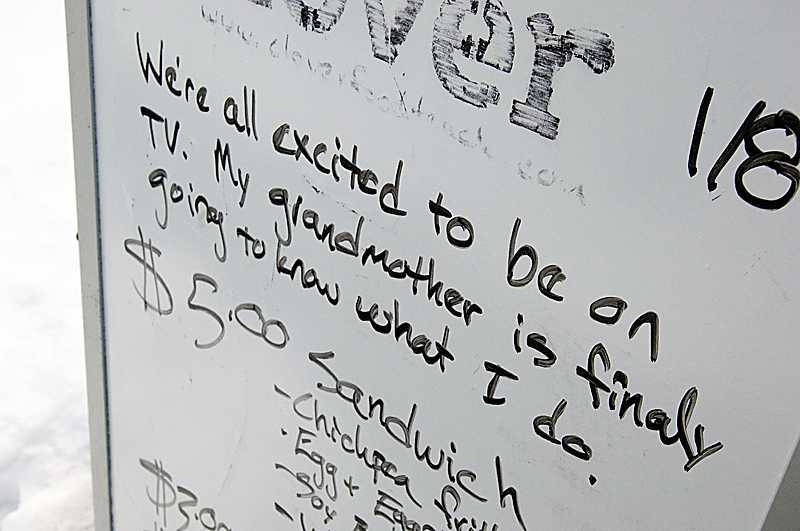 over
www.cloverfoodtruck.com
1/8
We're all excited to be on
TV. My grandmother is finaly
going to know what I do.
$5.00 Sandwich
- Chickpea
- Egg + Eggp
- soy
$3.00